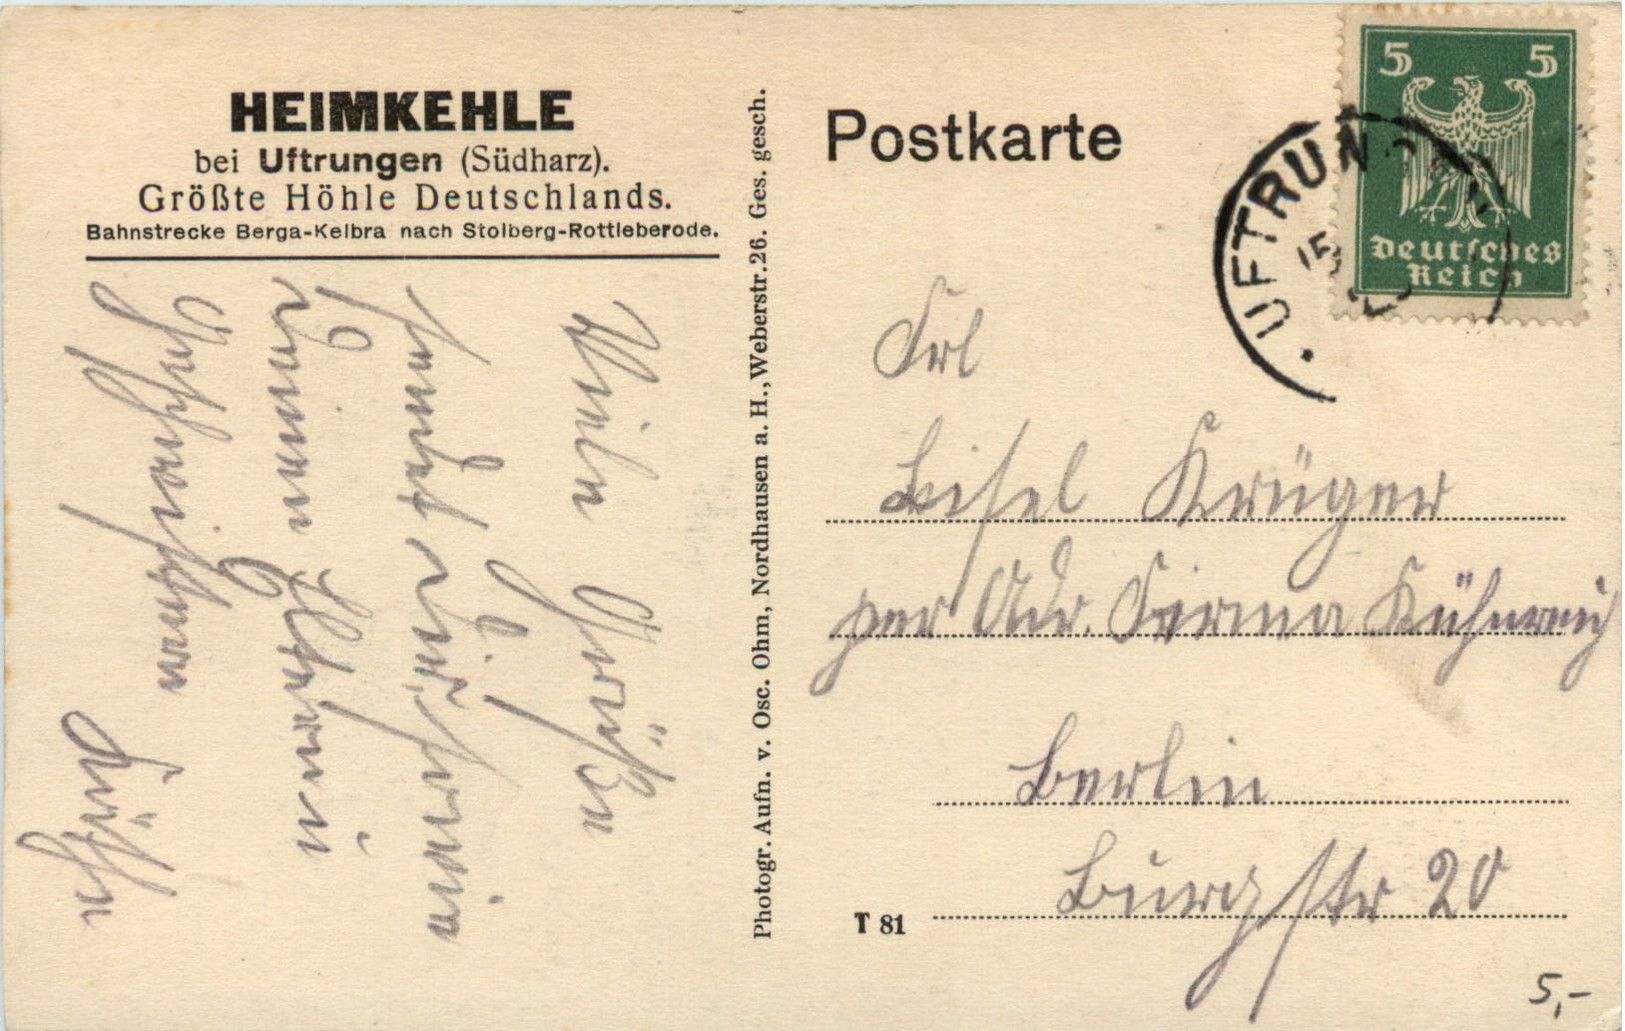 HEIMKEHLE
bei Uftrungen (Südharz).
Größte Höhle Deutschlands.
Bahnstrecke Berga-Kelbra nach Stolberg-Rottleberode.
Viele Grüße
sendet
Deinen Eltern u.
Geschwistern
Käthe
Photogr. Aufn. v. Osc. Ohm, Nordhausen a. H., Weberstr. 26. Ges. gesch.
Postkarte
5 5
Deutsches
Reich
UFTRUNGEN
Frl
Liesel Krüger
per Adr. Firma
Berlin
Burgstr 20
T 81
5,-